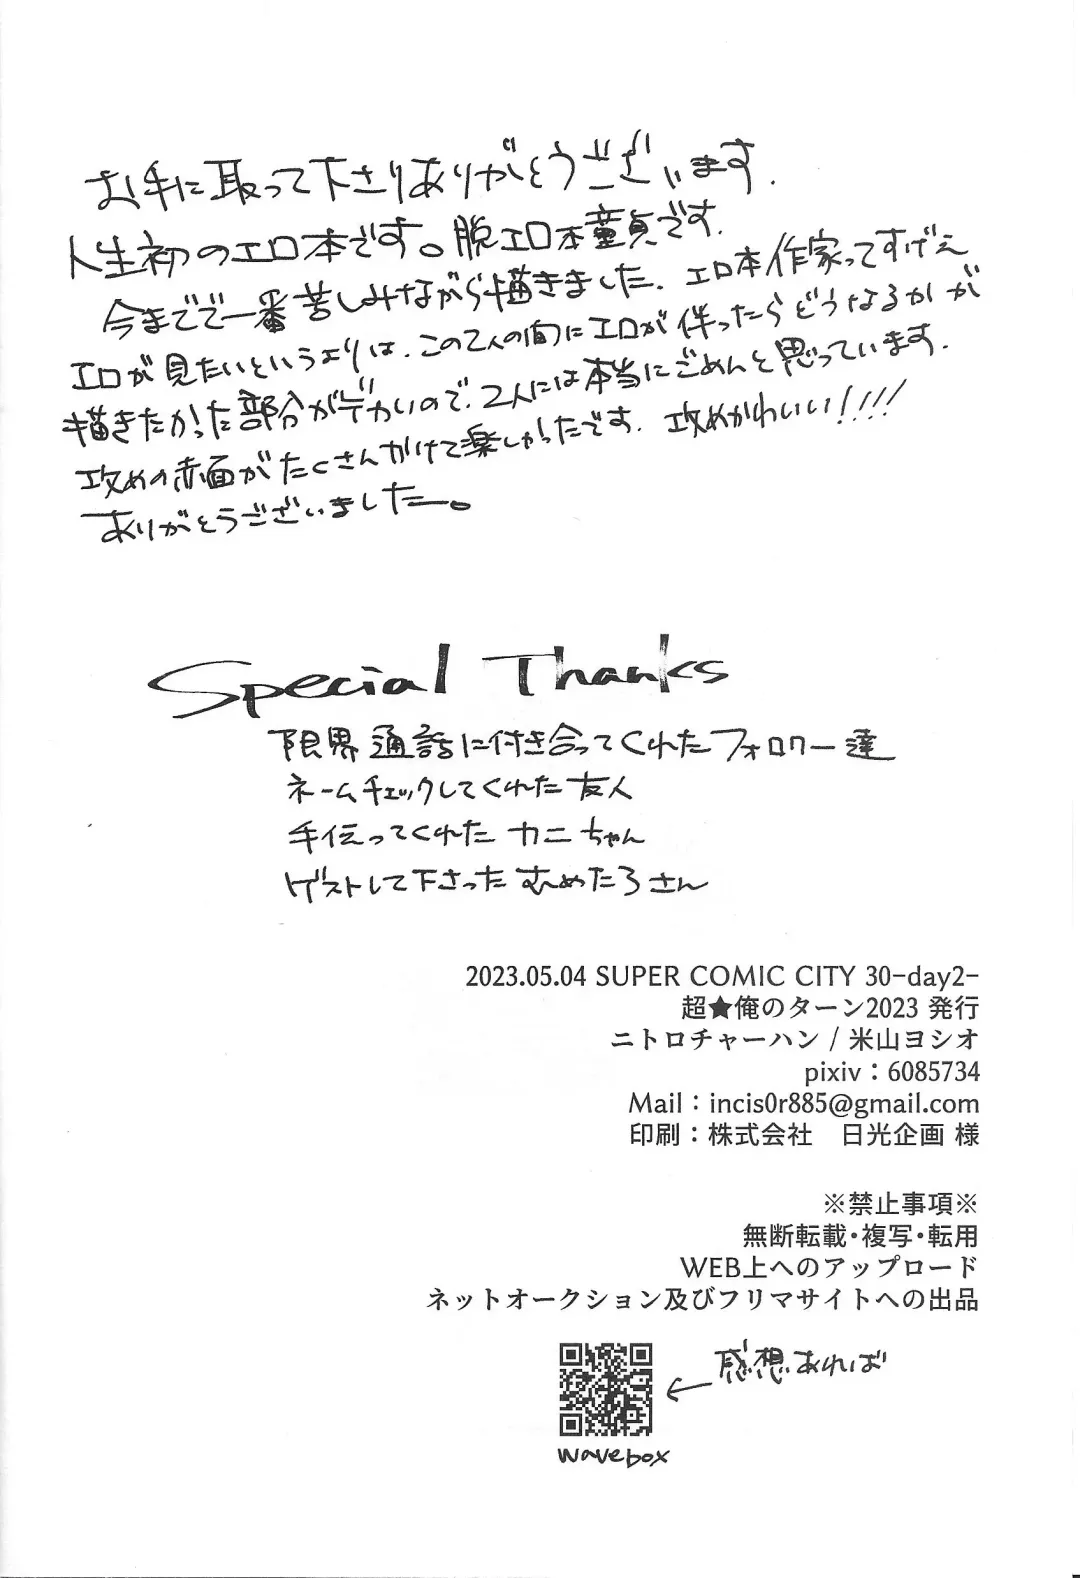 お手に取って下さりありがとうございます.
人生初のエロ本です。脱エロ本童貞です.
今までで一番苦しみながら描きました. エロ本作家ってすげえ
エロが見たいというよりは、この2人の間にエロが伴ったらどうなるかが
描きたかった部分がデかいので、2人には本当にごめんと思っています.
攻めの赤面がたくさんかけて楽しかったです. 攻めかわいい!!!!
ありがとうございました。
Special Thanks
限界通話に付き合ってくれたフォロワー達
ネームチェックしてくれた友人
手伝ってくれた カニちゃん
ゲストして下さった むめたろさん
2023.05.04 SUPER COMIC CITY 30-day2-
超★俺のターン2023 発行
ニトロチャーハン / 米山ヨシオ
pixiv：6085734
Mail：incis0r885@gmail.com
印刷：株式会社　日光企画 様
※禁止事項※
無断転載・複写・転用
WEB上へのアップロード
ネットオークション及びフリマサイトへの出品
感想あれば
wavebox